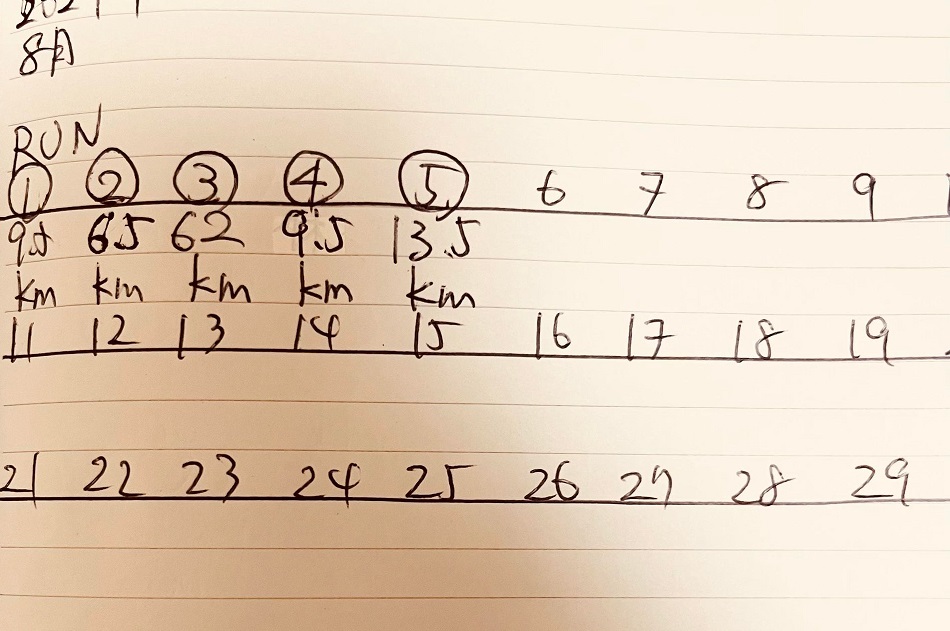 8月
RUN
① ② ③ ④ ⑤ 6 7 8 9
9.5 6.5 62 9.5 13.5
km km km km km
11 12 13 14 15 16 17 18 19
21 22 23 24 25 26 27 28 29